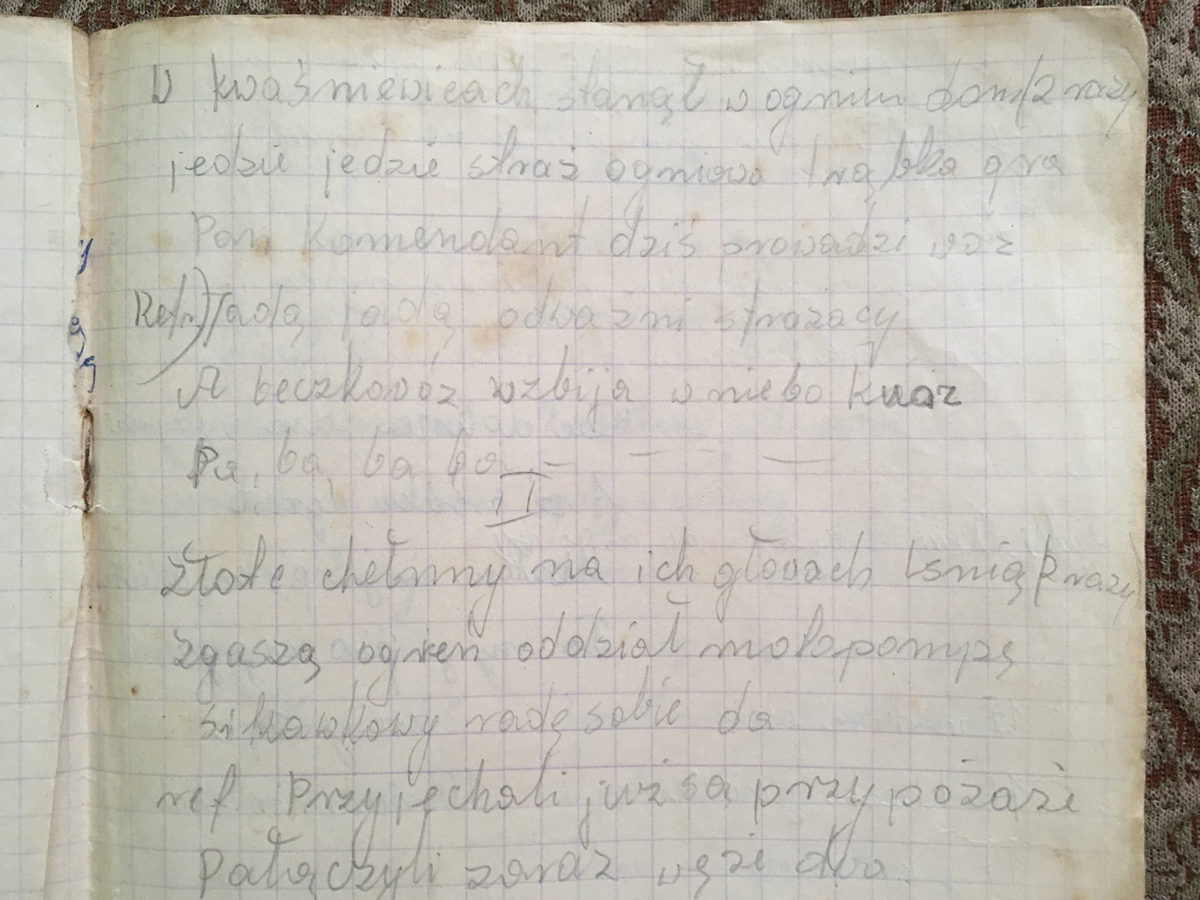 W kwaśniewicach stanął w ogniu dom/2 razy
jedzie jedzie straż ogniowa trąbka gra
Pan Komendant dziś prowadzi wóz
Ref) Jadą jadą odważni strażacy
A beczkowóz wzbija w niebo kurz
Pa, ba, ba ba — — - —
II
złote chełmy na ich głowach lśnią/2 razy
zgaszą ogień oddział motopompę
sikawkowy radę sobie da
ref Przyjechali już są przy pożaże
Połączyli zaraz węże dwa.